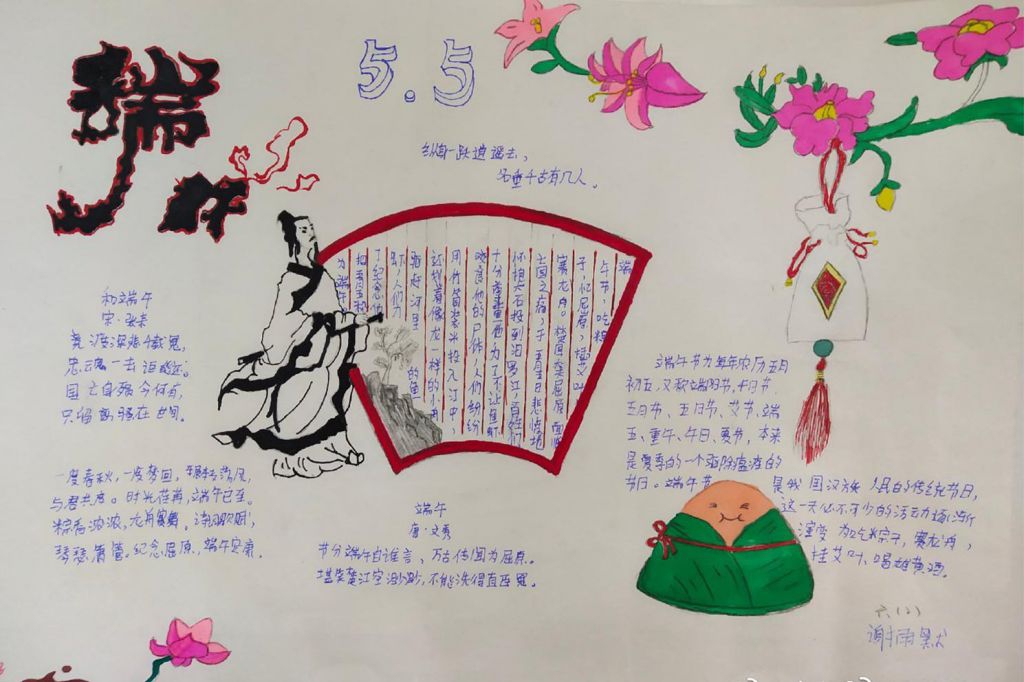 端午
5.5
纵身一跃逍遥去，
名垂千古有几人。
端
午节，吃粽
子，忆屈原，挂艾叶，
赛龙舟。楚国大臣屈原面临
亡国之痛，于五月五日悲愤地
怀抱大石投到汨罗江，百姓们
十分尊重他，为了不让鱼虾
啃食他的尸体，人们纷纷
用竹筒装米投入江中，
还划着像龙一样的小舟
驱赶河里的鱼
虾，人们为
了纪念他
把五月五
为端午
和端午
宋·张耒
竞渡深悲千载冤，
忠魂一去讵能还。
国亡身殒今何有，
只留离骚在世间。
一度春秋，一度梦回，
与君共度。时光荏苒，端午已至。
粽香浓浓，龙舟飞舞。
琴瑟萧管。纪念屈原，端午安康
端午
唐·文秀
节分端午自谁言，万古传闻为屈原。
堪笑楚江空渺渺，不能洗得直臣冤。
端午节为每年农历五月
初五，又称端阳节，午日节、
五月节、五日节、艾节、端
五、重午、午日、夏节，本来
是夏季的一个驱除瘟疫的
节日。端午节
是我国汉族人民的传统节日，
这一天必不可少的活动逐渐
演变为吃粽子，赛龙舟，
挂艾叶、喝雄黄酒。
六(2)
谢雨默